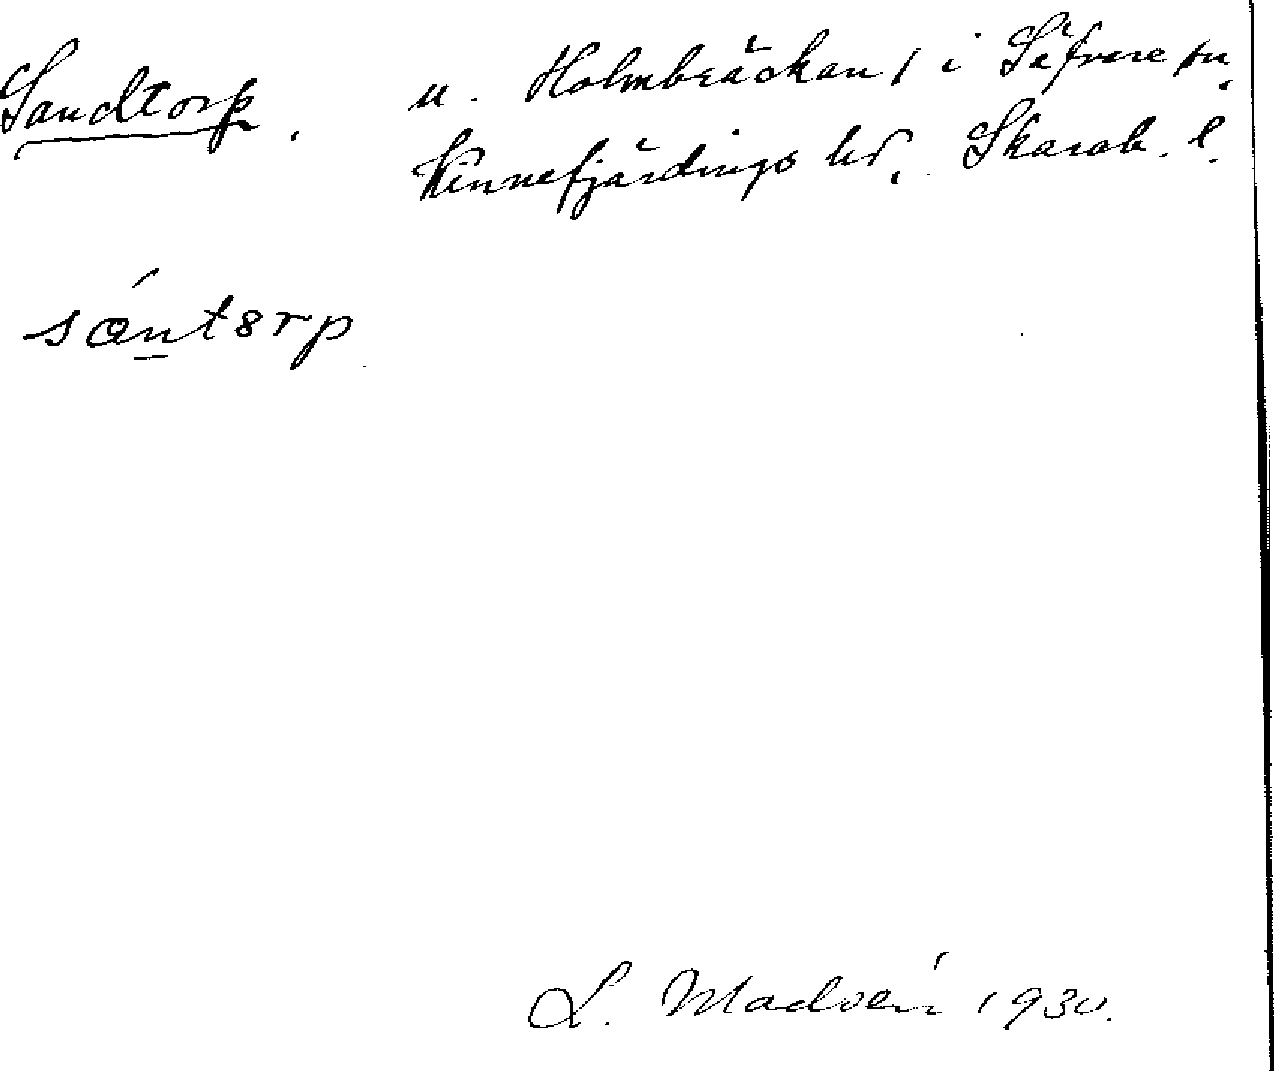 Sandtorp. u. Holmbräckan, i Säfvare sn,
Kinnefjärdings hd, Skarab. l.
sántorp
L. Madsén 1930.